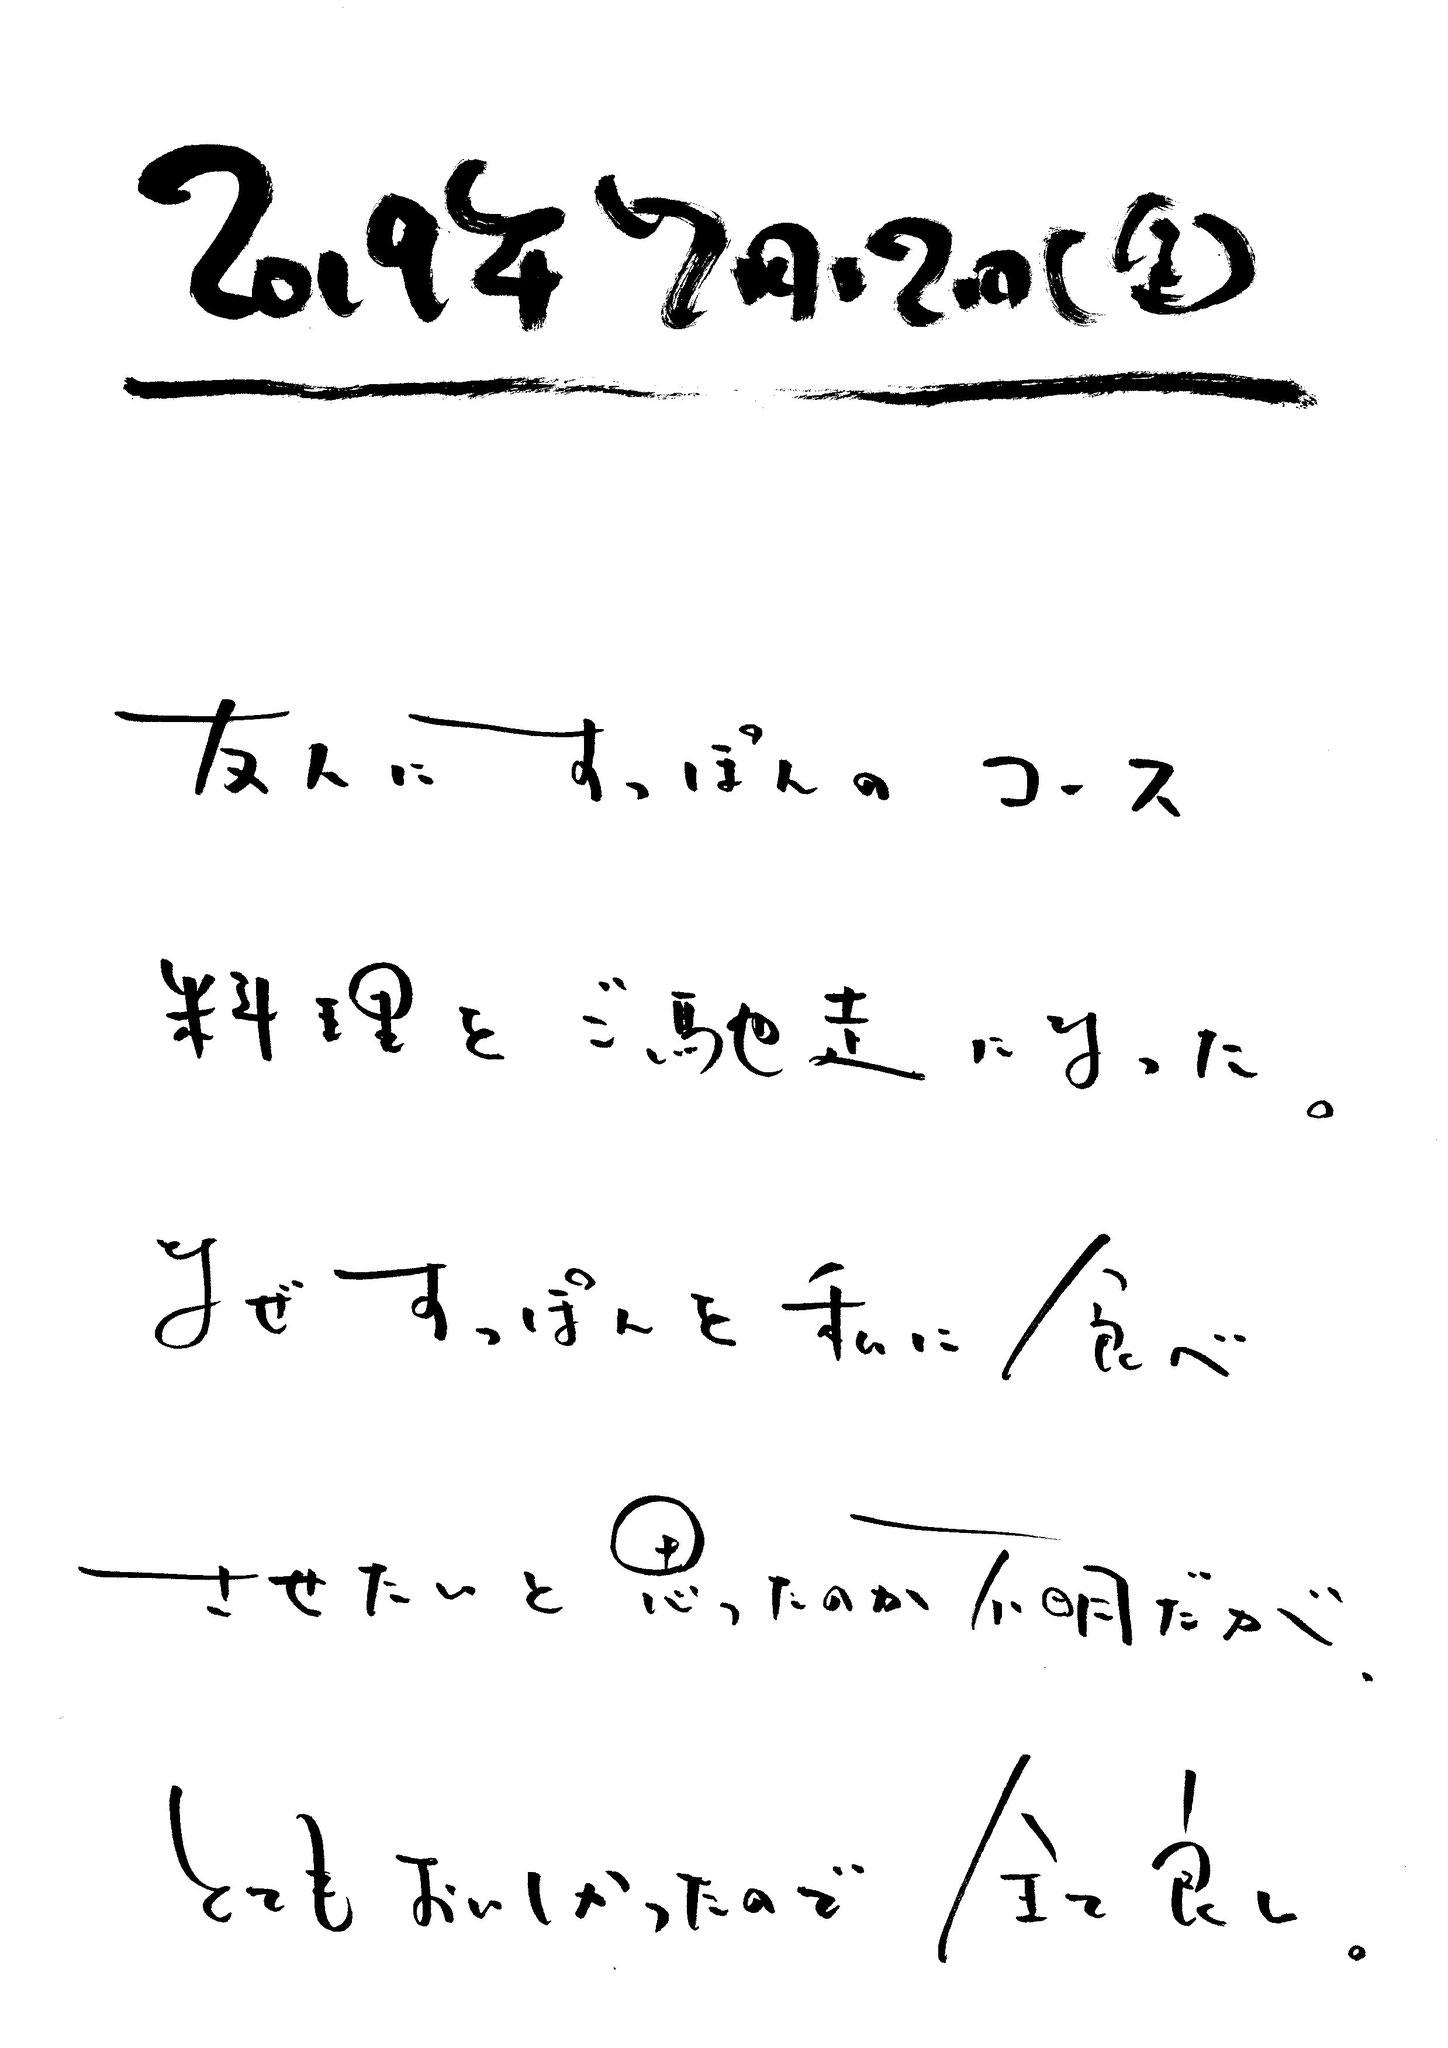 2019年7月20(金)
友人にすっぽんのコース
料理をご馳走になった。
なぜすっぽんを私に食べ
させたいと思ったのか不明だが、
とてもおいしかったので全て良し。